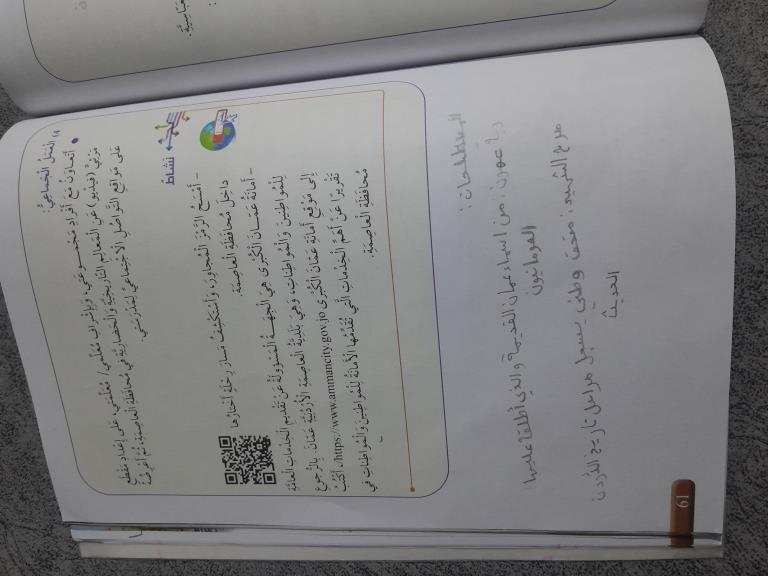 ١٥) الْعَمَلُ الْجَماعِيُّ:
• أَتَعاوَنُ مَعَ أَفْرادِ مَجْموعَتي، وَبِإِشْرافِ مُعَلِّمي/ مُعَلِّمَتي، عَلى إِعْدادِ مَقْطَعٍ
مَرْئِيٍّ (فيديو) عَنِ الْمَعالِمِ التّاريخِيَّةِ وَالْحَضارِيَّةِ في مُحافَظَةِ الْعاصِمَةِ، ثُمَّ أَعْرِضُهُ
عَلى مَواقِعِ التَّواصُلِ الِاجْتِماعِيِّ لِمَدْرَسَتي.
نشاط
- أَمْسَحُ الرَّمْزَ الْمُجاوِرَ، وَأَسْتَكْشِفُ مَسارَ رِحْلَةٍ أَخْتارُها
داخِلَ مُحافَظَةِ الْعاصِمَةِ.
- أَمانَةُ عَمّانَ الْكُبْرى هِيَ الْجِهَةُ الْمَسْؤولَةُ عَنْ تَقْديمِ الْخِدْماتِ الْعامَّةِ
لِلْمُواطِنينَ وَالْمُواطِناتِ، وَهِيَ بَلَدِيَّةُ الْعاصِمَةِ الْأُرْدُنِيَّةِ عَمّانَ. بِالرُّجوعِ
إِلى مَوْقِعِ أَمانَةِ عَمّانَ الْكُبْرى https://www.ammancity.gov.jo، أَكْتُبُ
تَقْريرًا عَنْ أَهَمِّ الْخِدْماتِ الَّتي تُقَدِّمُها الْأَمانَةُ لِلْمُواطِنينَ وَالْمُواطِناتِ في
مُحافَظَةِ الْعاصِمَةِ.
المصطلحات:
ربة عمون: من اسماء عمان القديمة والذي أطلقه عليها
العمونيون
صرح الشهيد: متحف وطني يسجل مراحل تاريخ الأردن
الحديث
61